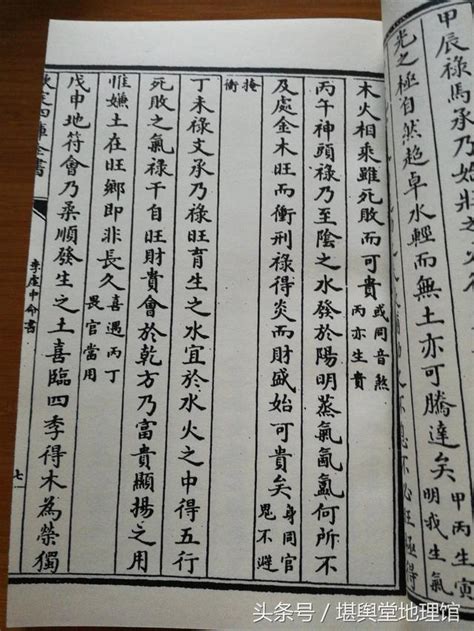 甲辰祿馬承乃始將之火
光之極自然超卓水輕而無土亦可騰達矣甲丙生寅明我生氣
木火相乘雖死敗而可貴或同音煞丙亦生貴
丙午神頭祿乃至陰之水發於陽明蒸氣氤氳何所不
及處金木旺而衝刑祿得炎而財盛始可貴矣身同官鬼不避
掩衝
丁未祿文承乃祿旺育生之水宜於水火之中得五行
死敗之氣祿干自旺財貴會於乾方乃富貴顯揚之用
惟嫌土在旺鄉即非長久喜遇丙丁畏官當用
戊申地符會乃桑順發生之土喜臨四季得木為榮獨
欽定四庫全書
李虛中命書
七
头条号／堪舆堂地理馆